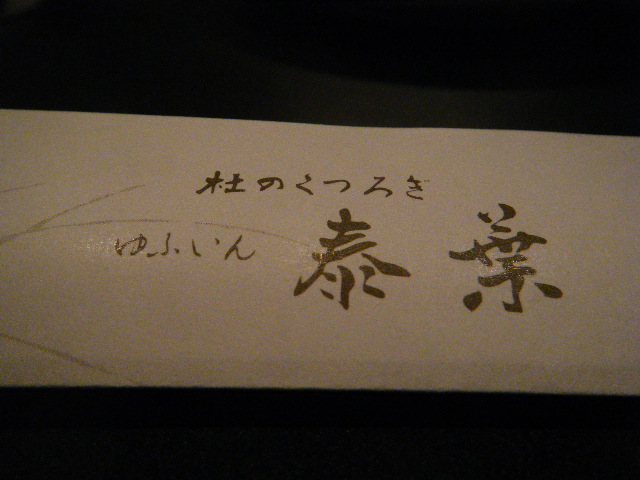 杜のくつろぎ
ゆふいん 泰葉